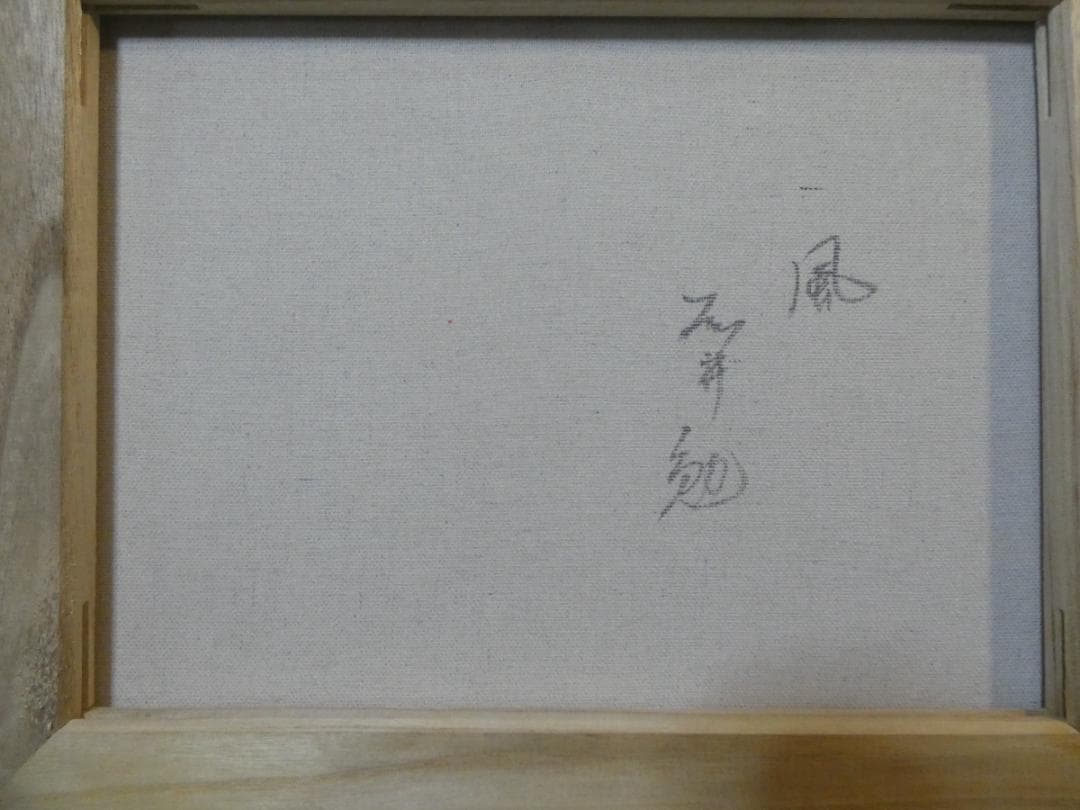 風
石井勉